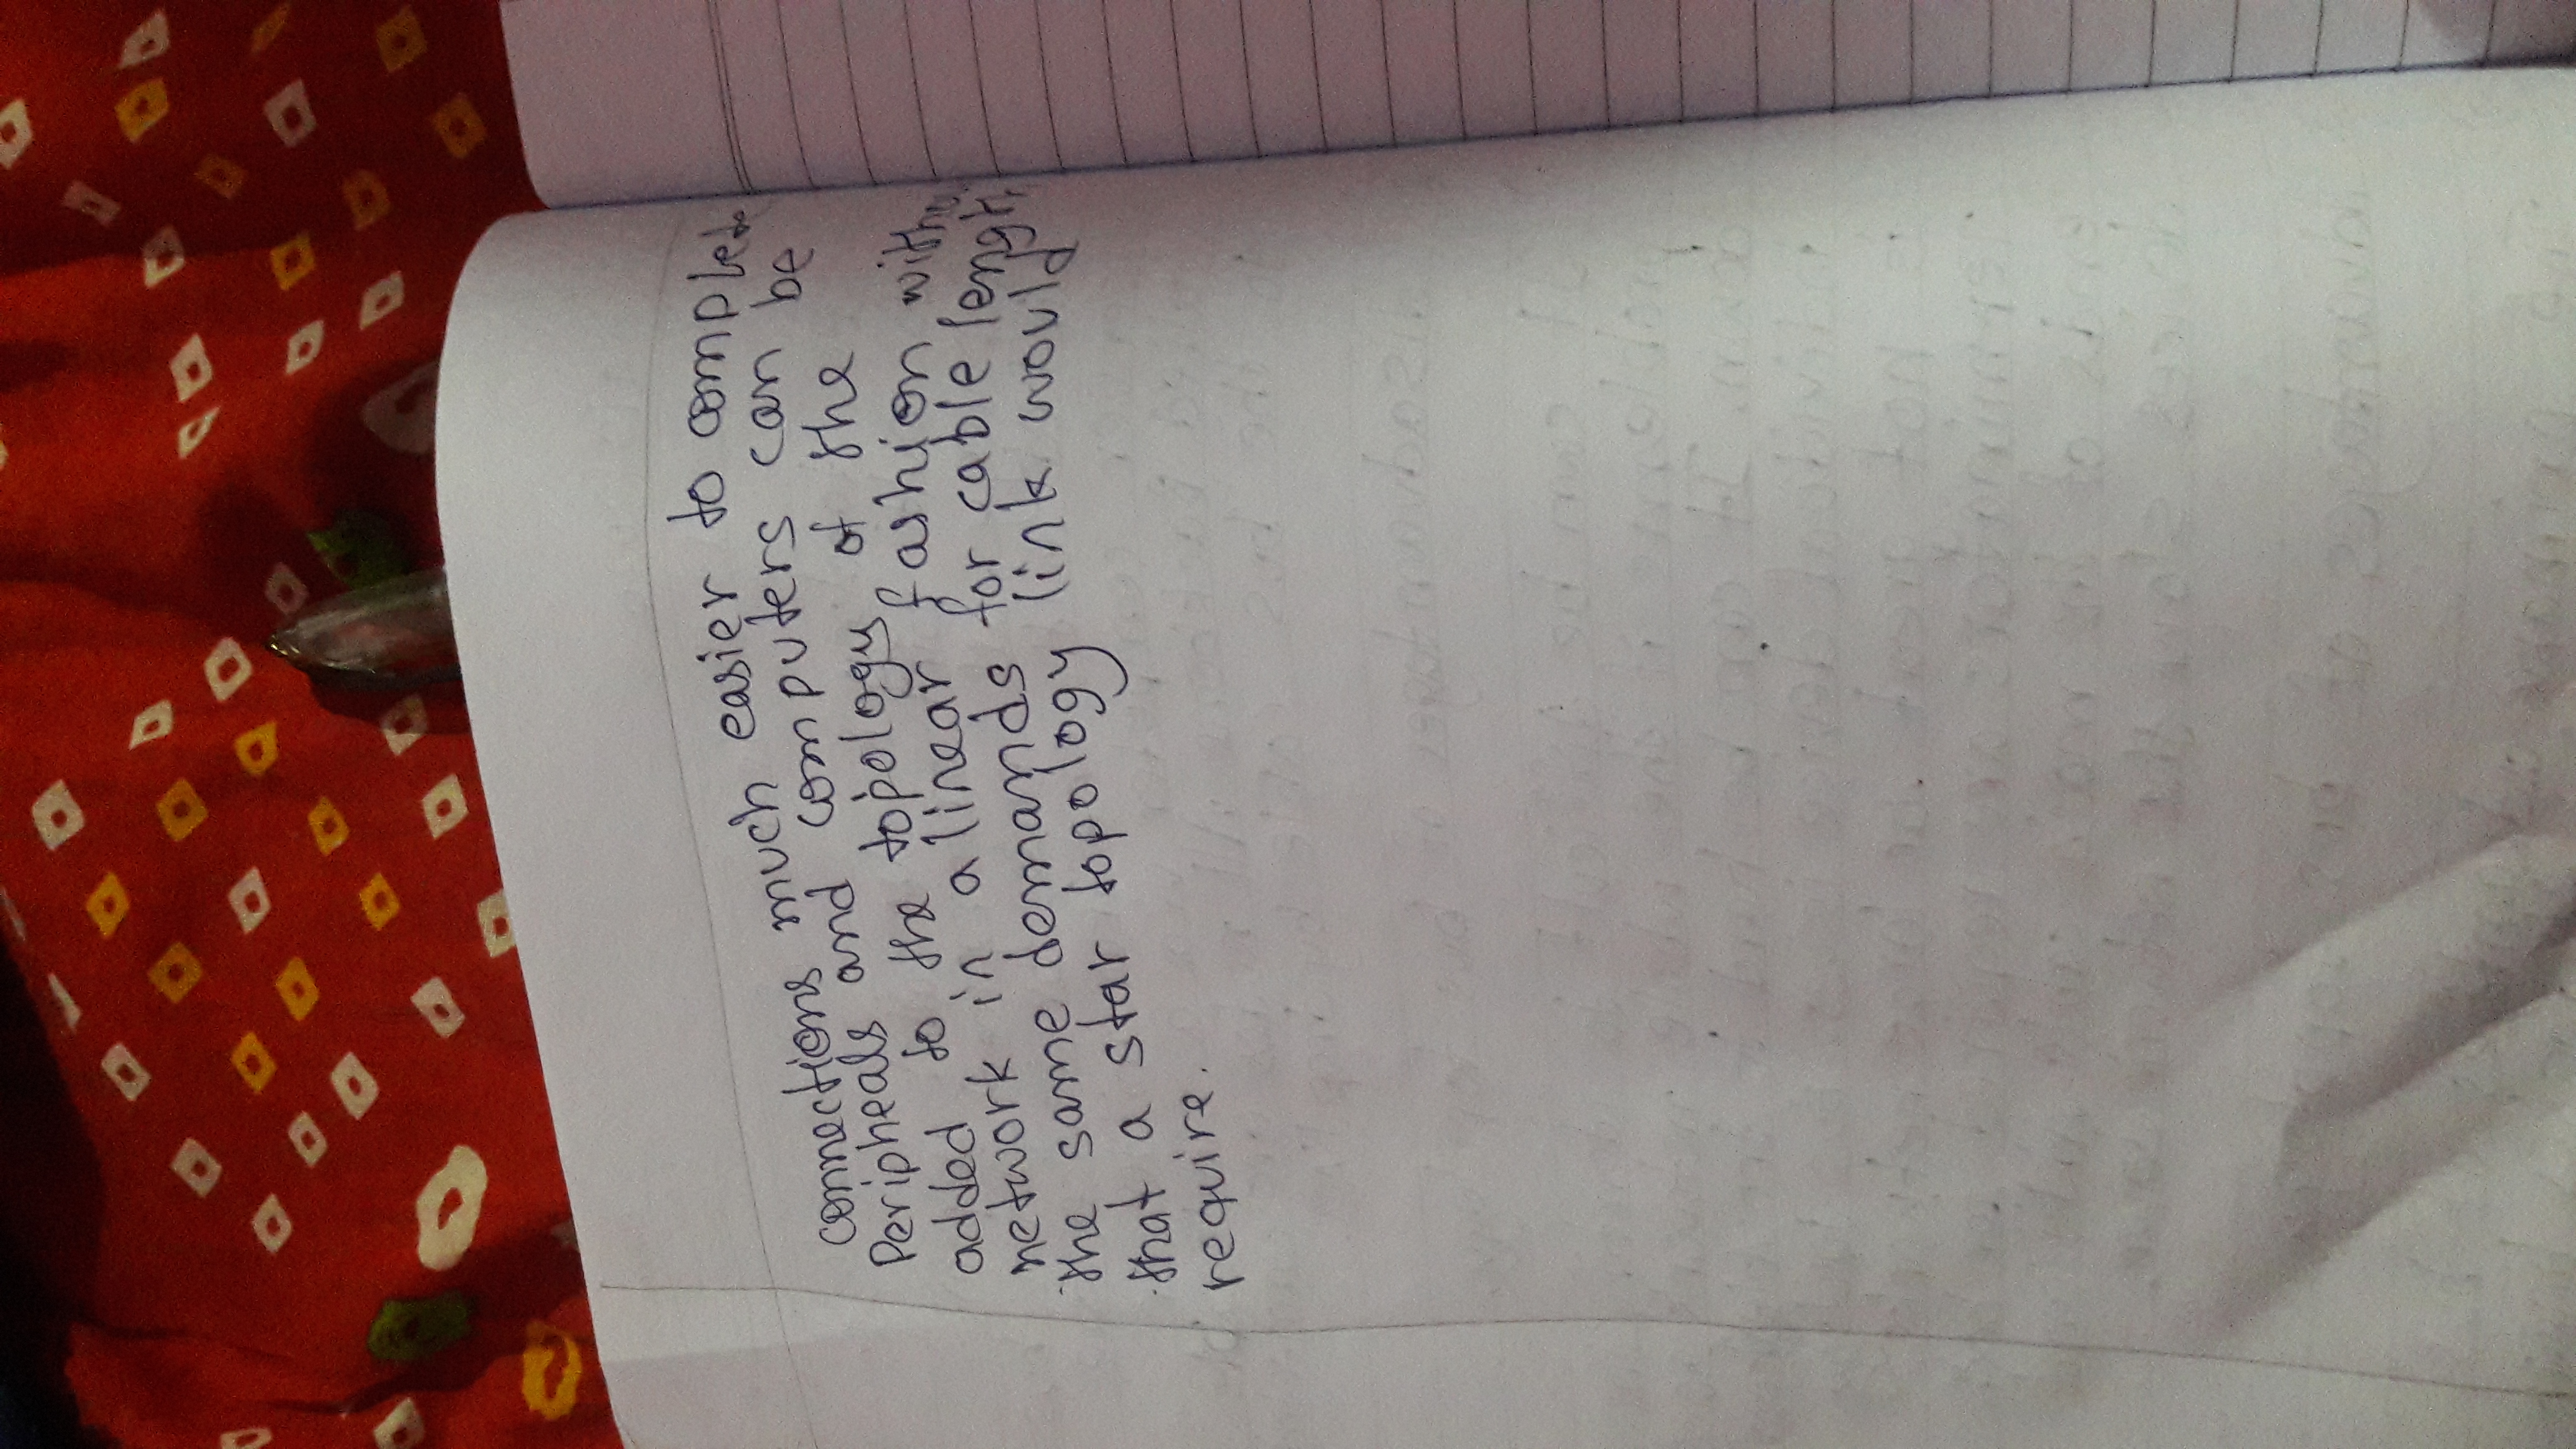 connections much easier to complete
Peripheals and computers can be
added to the topology of the
network in a linear fashion
the same demands for cable length
that a star topology link would
require.